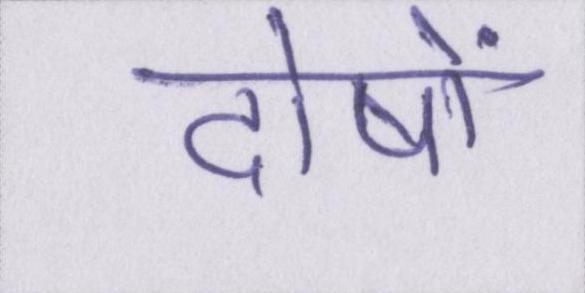 दोषों